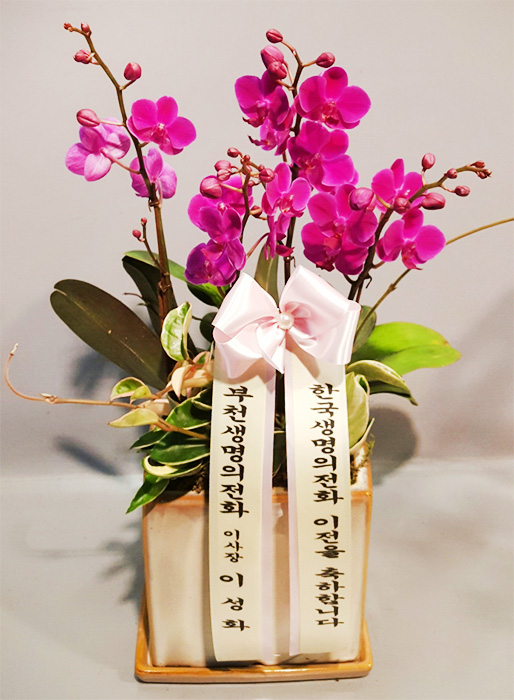 한국생명의전화 이전을 축하합니다
부천생명의전화 이사장 이성화